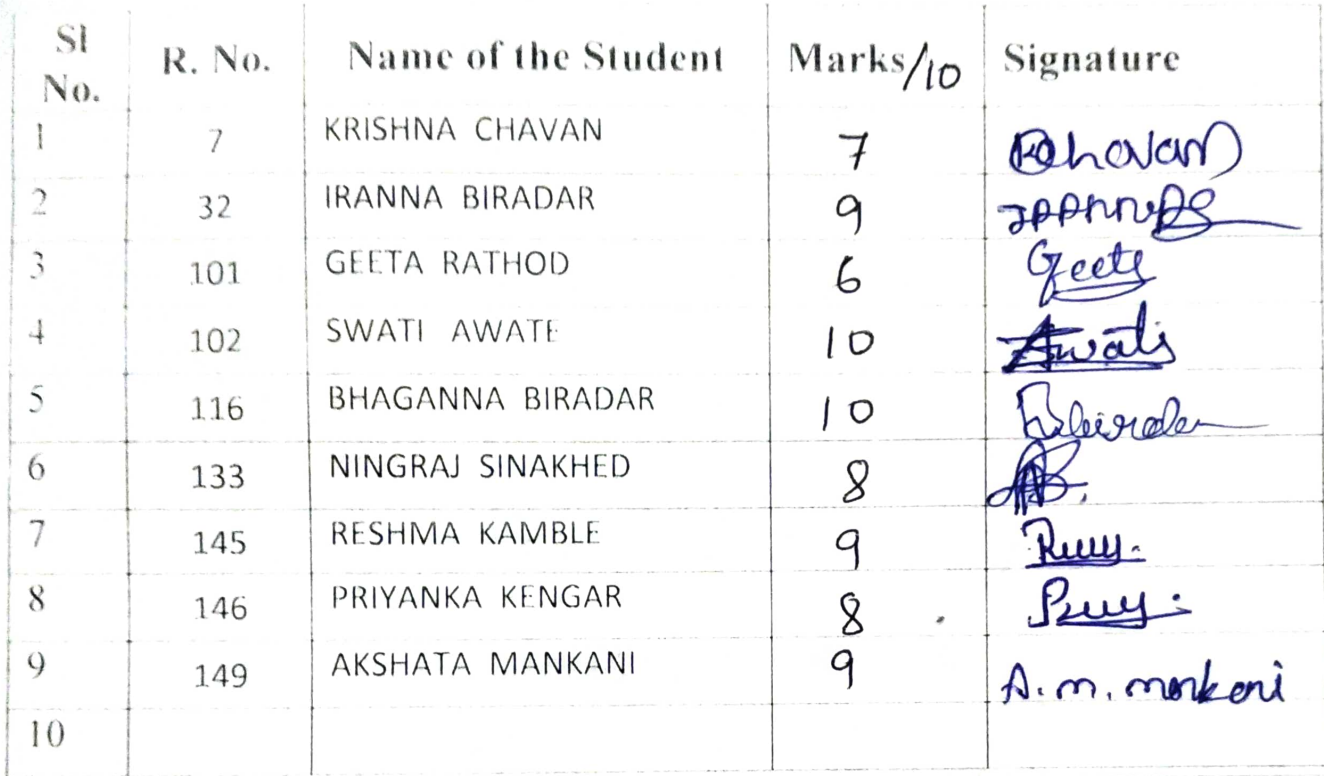 Sl No. R. No. Name of the Student Marks/10 Signature
1 7 KRISHNA CHAVAN 7 Chavan
2 32 IRANNA BIRADAR 9
3 101 GEETA RATHOD 6 Geeta
4 102 SWATI AWATE 10 Awati
5 116 BHAGANNA BIRADAR 10
6 133 NINGRAJ SINAKHED 8
7 145 RESHMA KAMBLE 9
8 146 PRIYANKA KENGAR 8
9 149 AKSHATA MANKANI 9 A. m. mankani
10